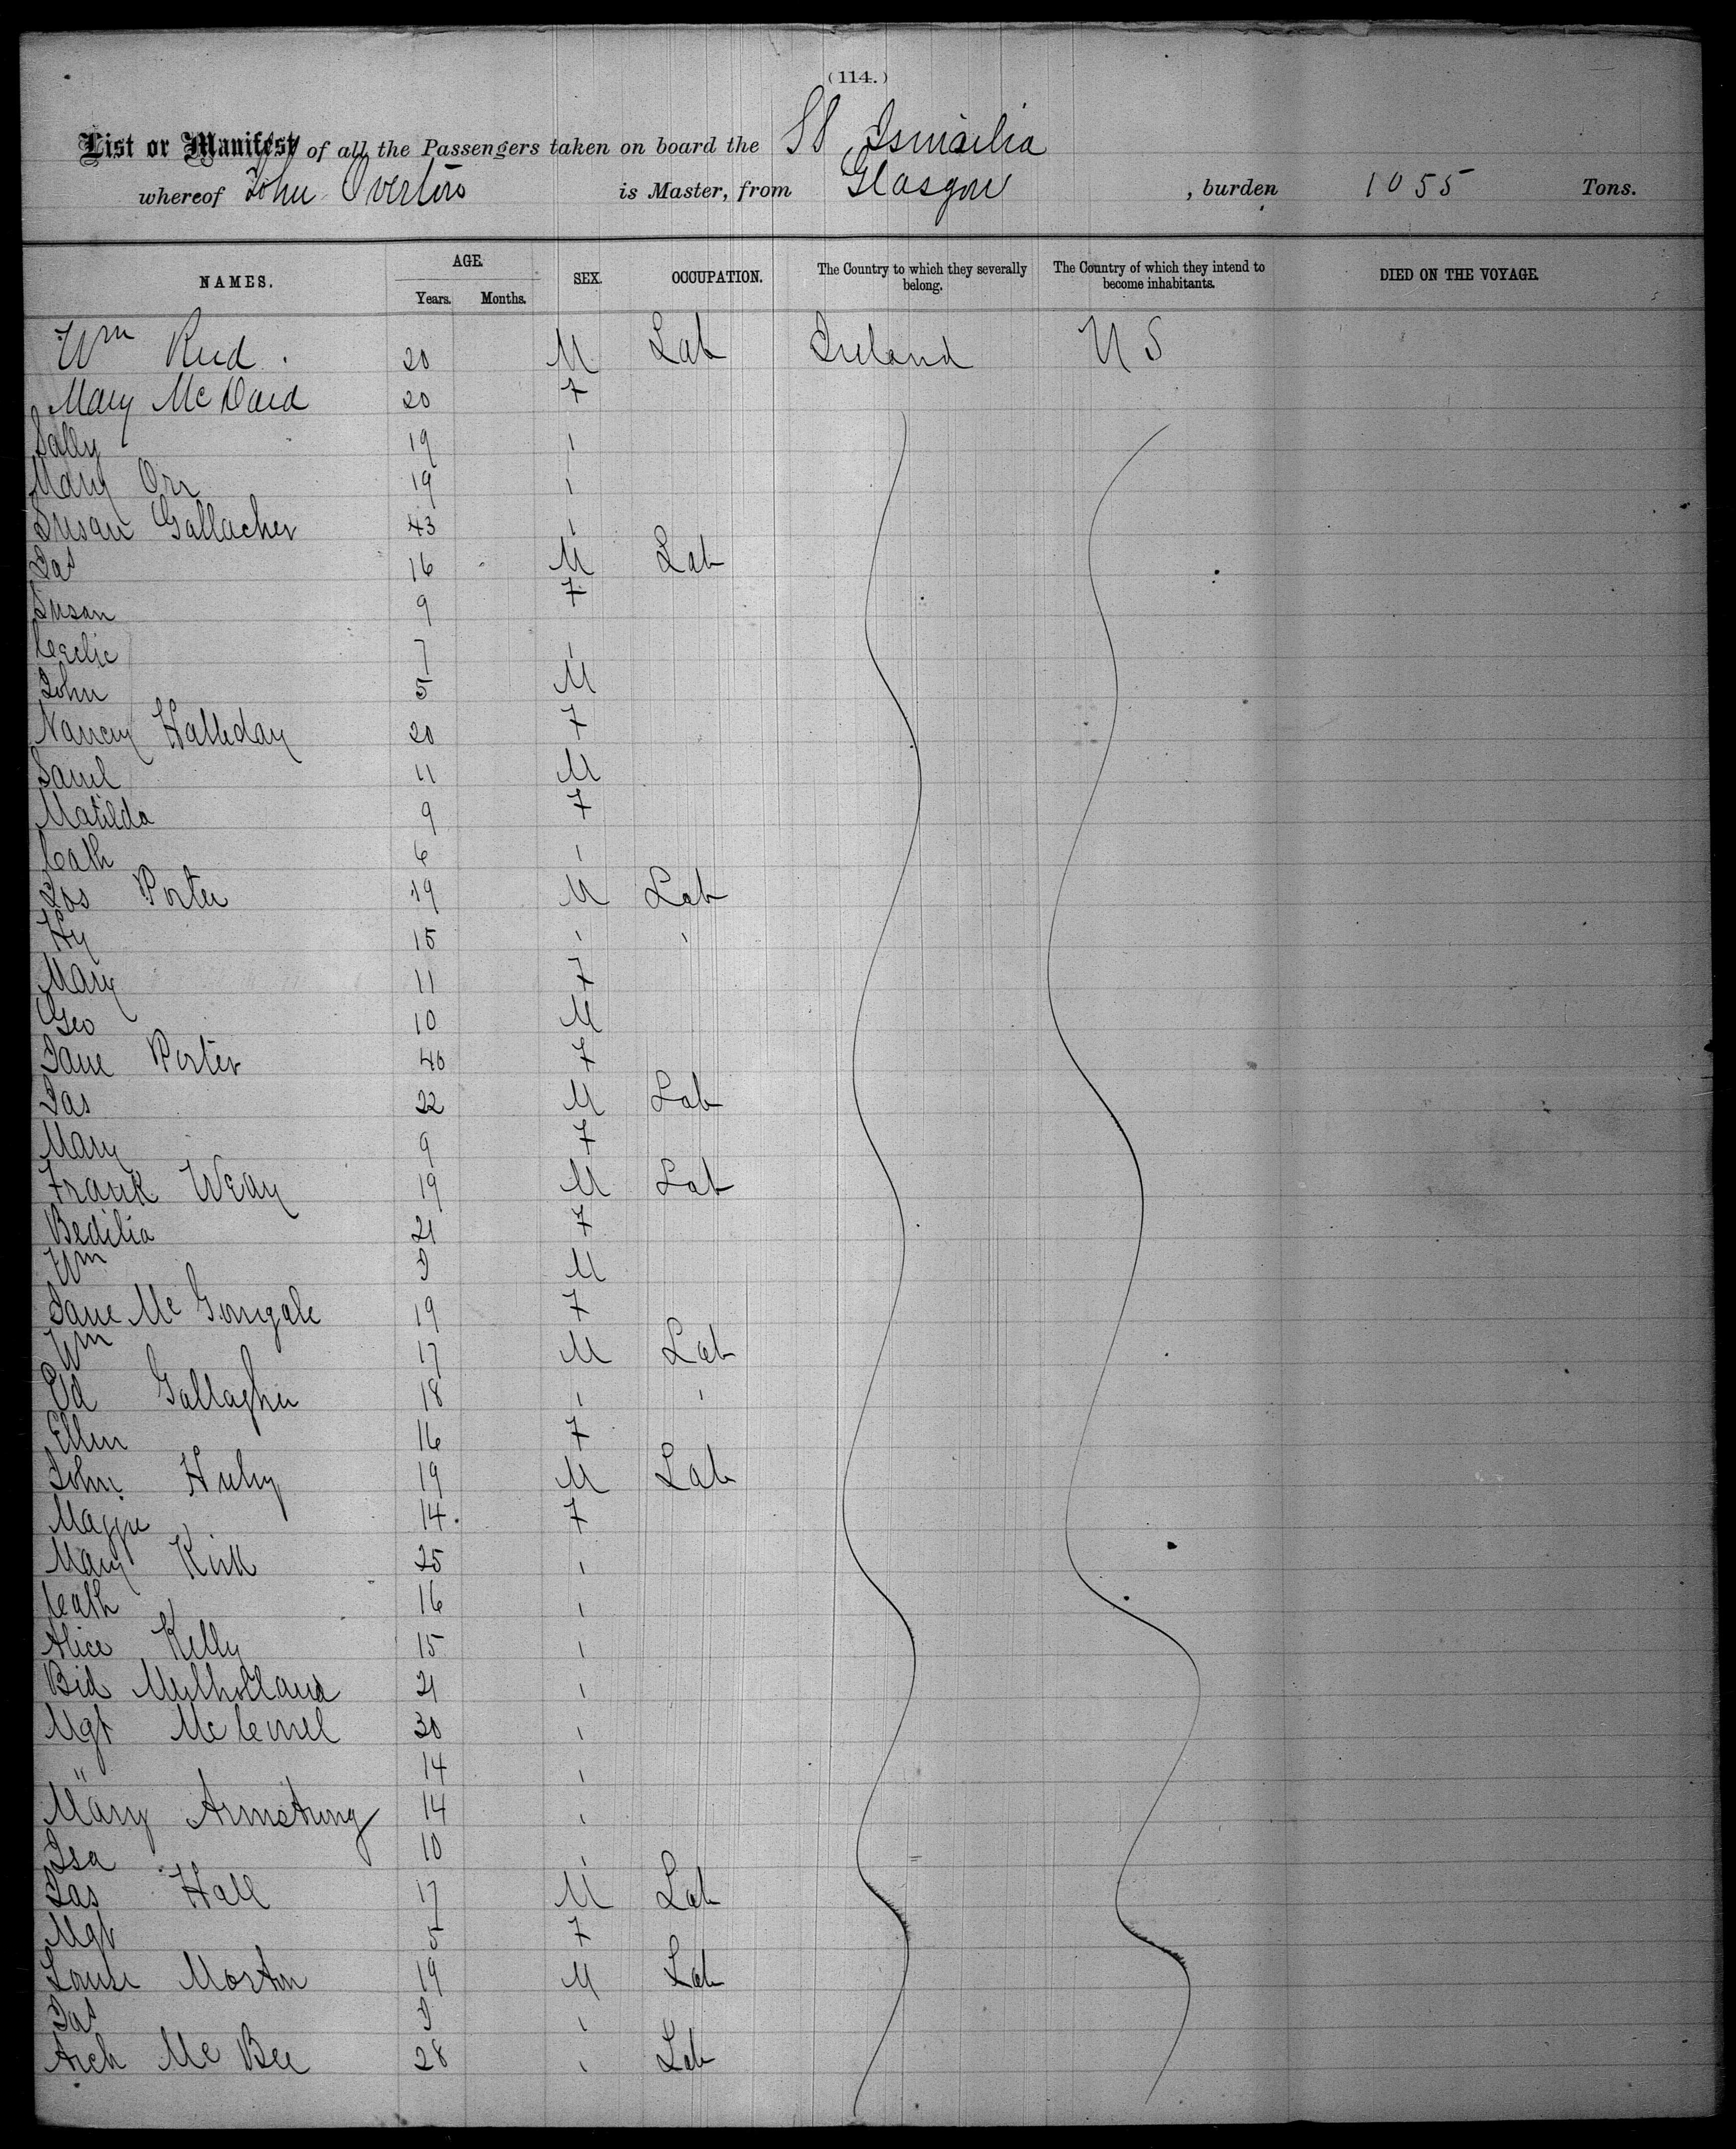 (114.)
List or Manifest of all the Passengers taken on board the SS Ismailia
whereof John Overton is Master, from Glasgow , burden 1055 Tons.
NAMES. AGE. SEX. OCCUPATION. The Country to which they severally belong. The Country of which they intend to become inhabitants. DIED ON THE VOYAGE.
Years. Months.
Wm Reid 20 M Lab Ireland U S
Mary Mc Daid 20 F
Sally 19 "
Mary Orr 19 "
Susan Gallacher 43 "
Jas 16 M Lab
Susan 9 F
Cecelie 7 "
John 5 M
Nancy Halliday 20 F
Saml 11 M
Matilda 9 F
Cath 6 "
Jos Porter 19 M Lab
Hy 15 " "
Mary 11 F
Geo 10 M
Jane Porter 40 F
Jas 22 M Lab
Mary 9 F
Frank Weay 19 M Lab
Bedilia 21 F
Wm M
Jane Mc Gonigale 19 F
Wm 17 M Lab
Ed Gallagher 18 " "
Ellen 16 F
John 19 M Lab
Maggie 14 F
Mary Kirk 25 "
Cath 16 "
Alice Kelly 15 "
Bid Mulholland 21 "
Mgt 30 "
" 14 "
Mary Armstrong 14 "
Isa 10 "
Jas Hall 17 M Lab
Mgt 5 F
Louse Morton 19 M Lab
Jas "
Arch Mc Bee 28 " Lab